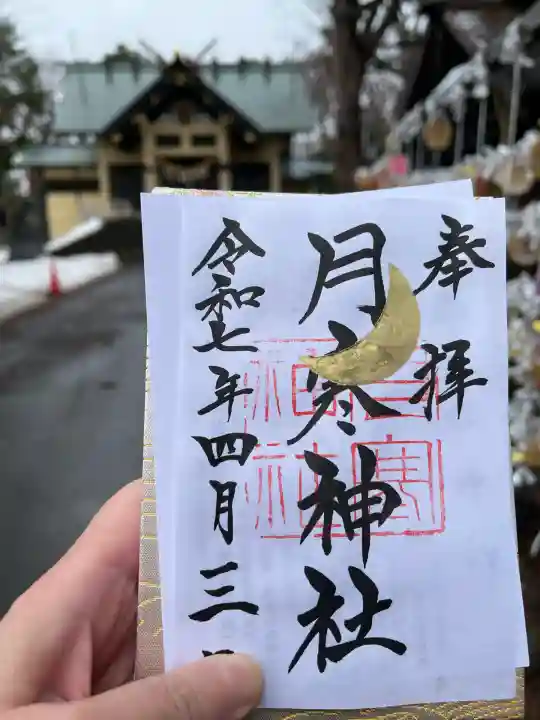 奉拝
月寒神社
月寒神社
令和七年四月三日